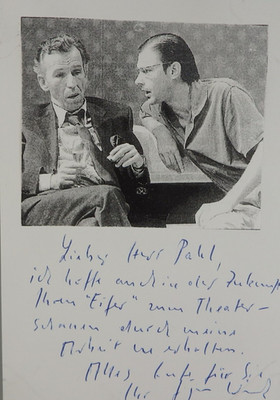 Lieber Herr Pahl,
ich hoffe auch in der Zukunft
Ihren "Eifer" zum Theater-
schauen durch meine
Arbeit zu erhalten.
Alles Gute für Sie
Ihr